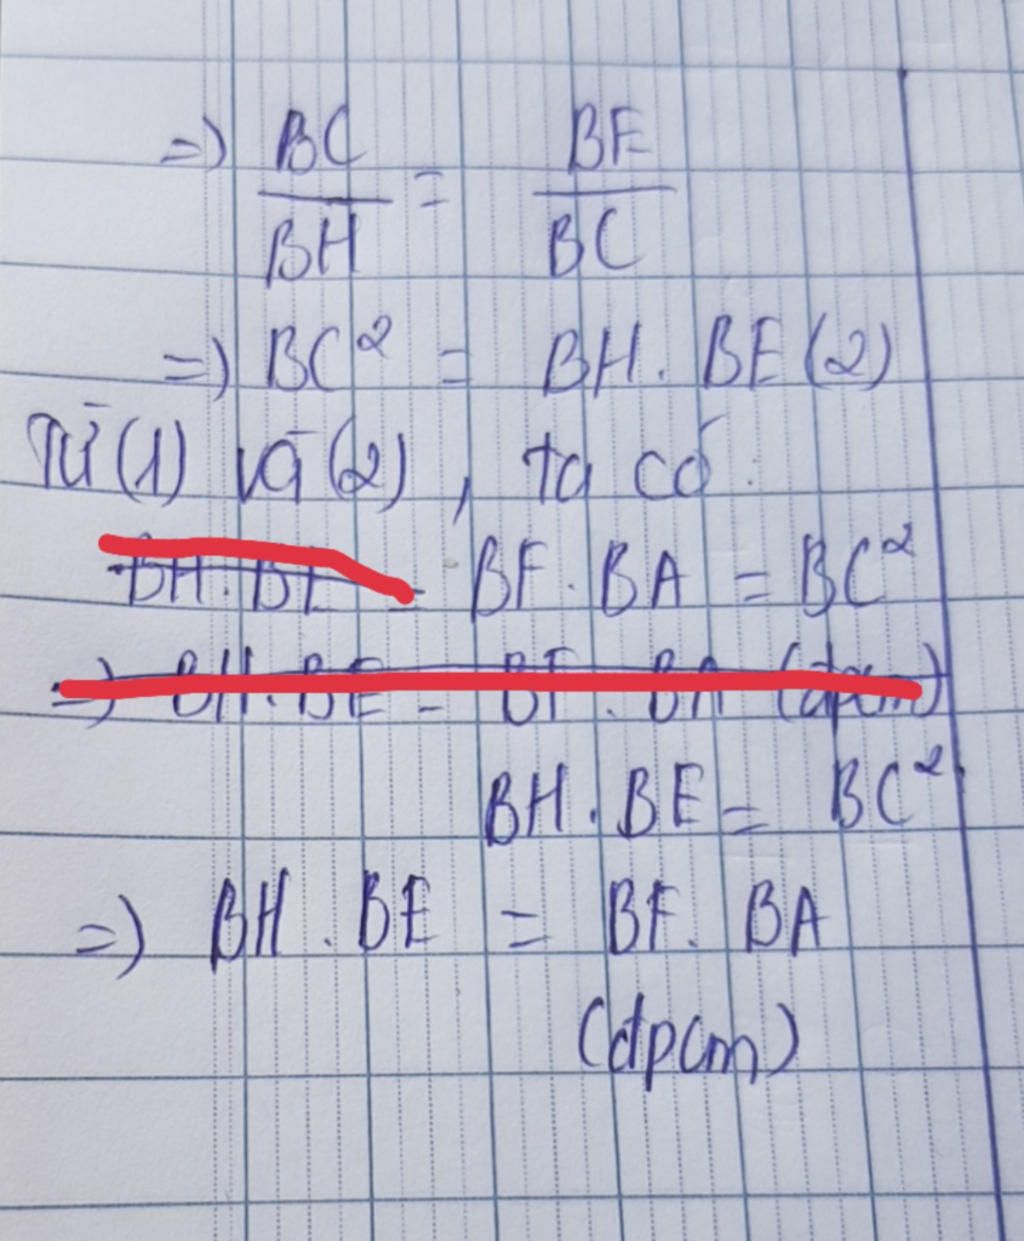 => BC/BH = BE/BC
=> BC² = BH. BE (2)
Từ (1) và (2), ta có:
BH. BE = BF. BA = BC²
=> BH. BE = BF. BA (đpcm)
BH. BE = BC²
=> BH. BE = BF. BA
(đpcm)